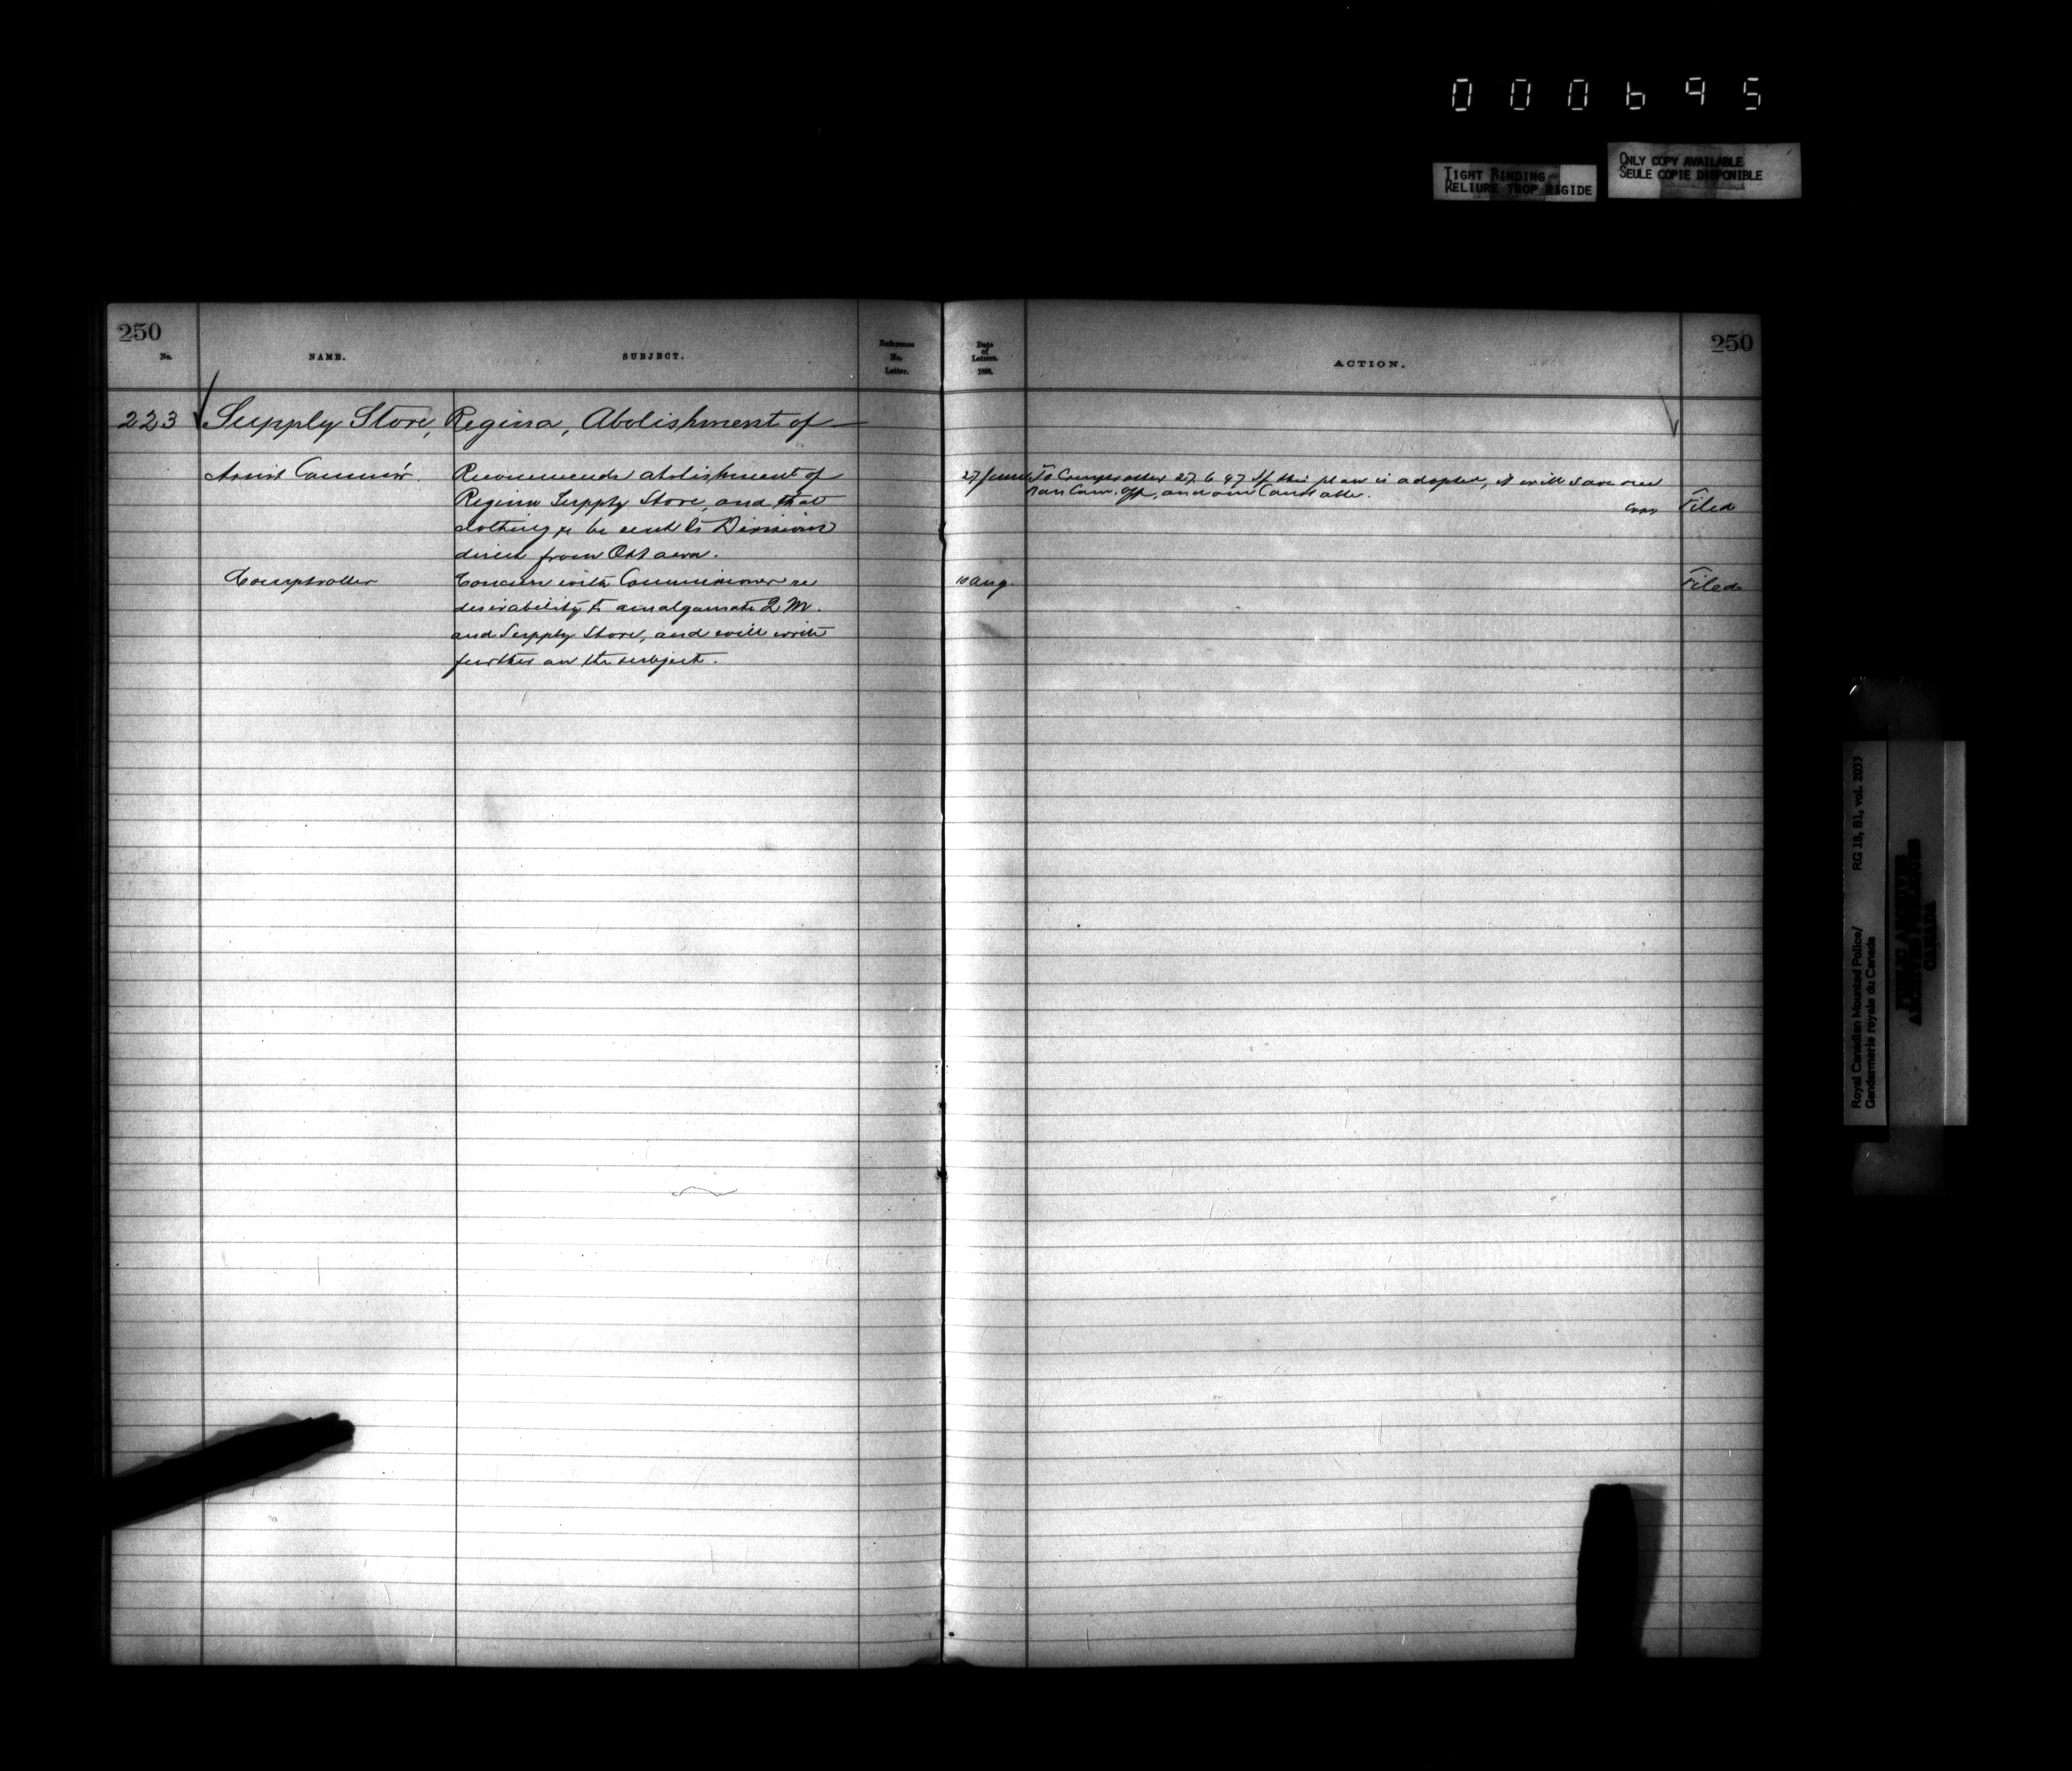 000695
TIGHT BINDING
RELIURE TROP RIGIDE
ONLY COPY AVAILABLE
SEULE COPIE DISPONIBLE
250
No.
NAME.
SUBJECT.
Reference
No.
Letter.
Date
of
Letters.
189
ACTION.
250
223 Supply Store, Regina, Abolishment of
Assist Commr.
Recommends abolishment of
Regina Supply Store, and that
clothing &c be sent to Divisions
direct from Ottawa.
27 June
To Comptroller 27.6.97 If this plan is adopted, it will save one
Non Com. Off, and one Constable.
Filed
Comptroller
Concurs with Commissioner re
desirability to amalgamate Q M.
and Supply Store, and will write
further on the subject.
10 Aug.
Filed
Royal Canadian Mounted Police/ RG 18, B1, vol. 2033
Gendarmerie royale du Canada
PUBLIC ARCHIVES
ARCHIVES PUBLIQUES
CANADA